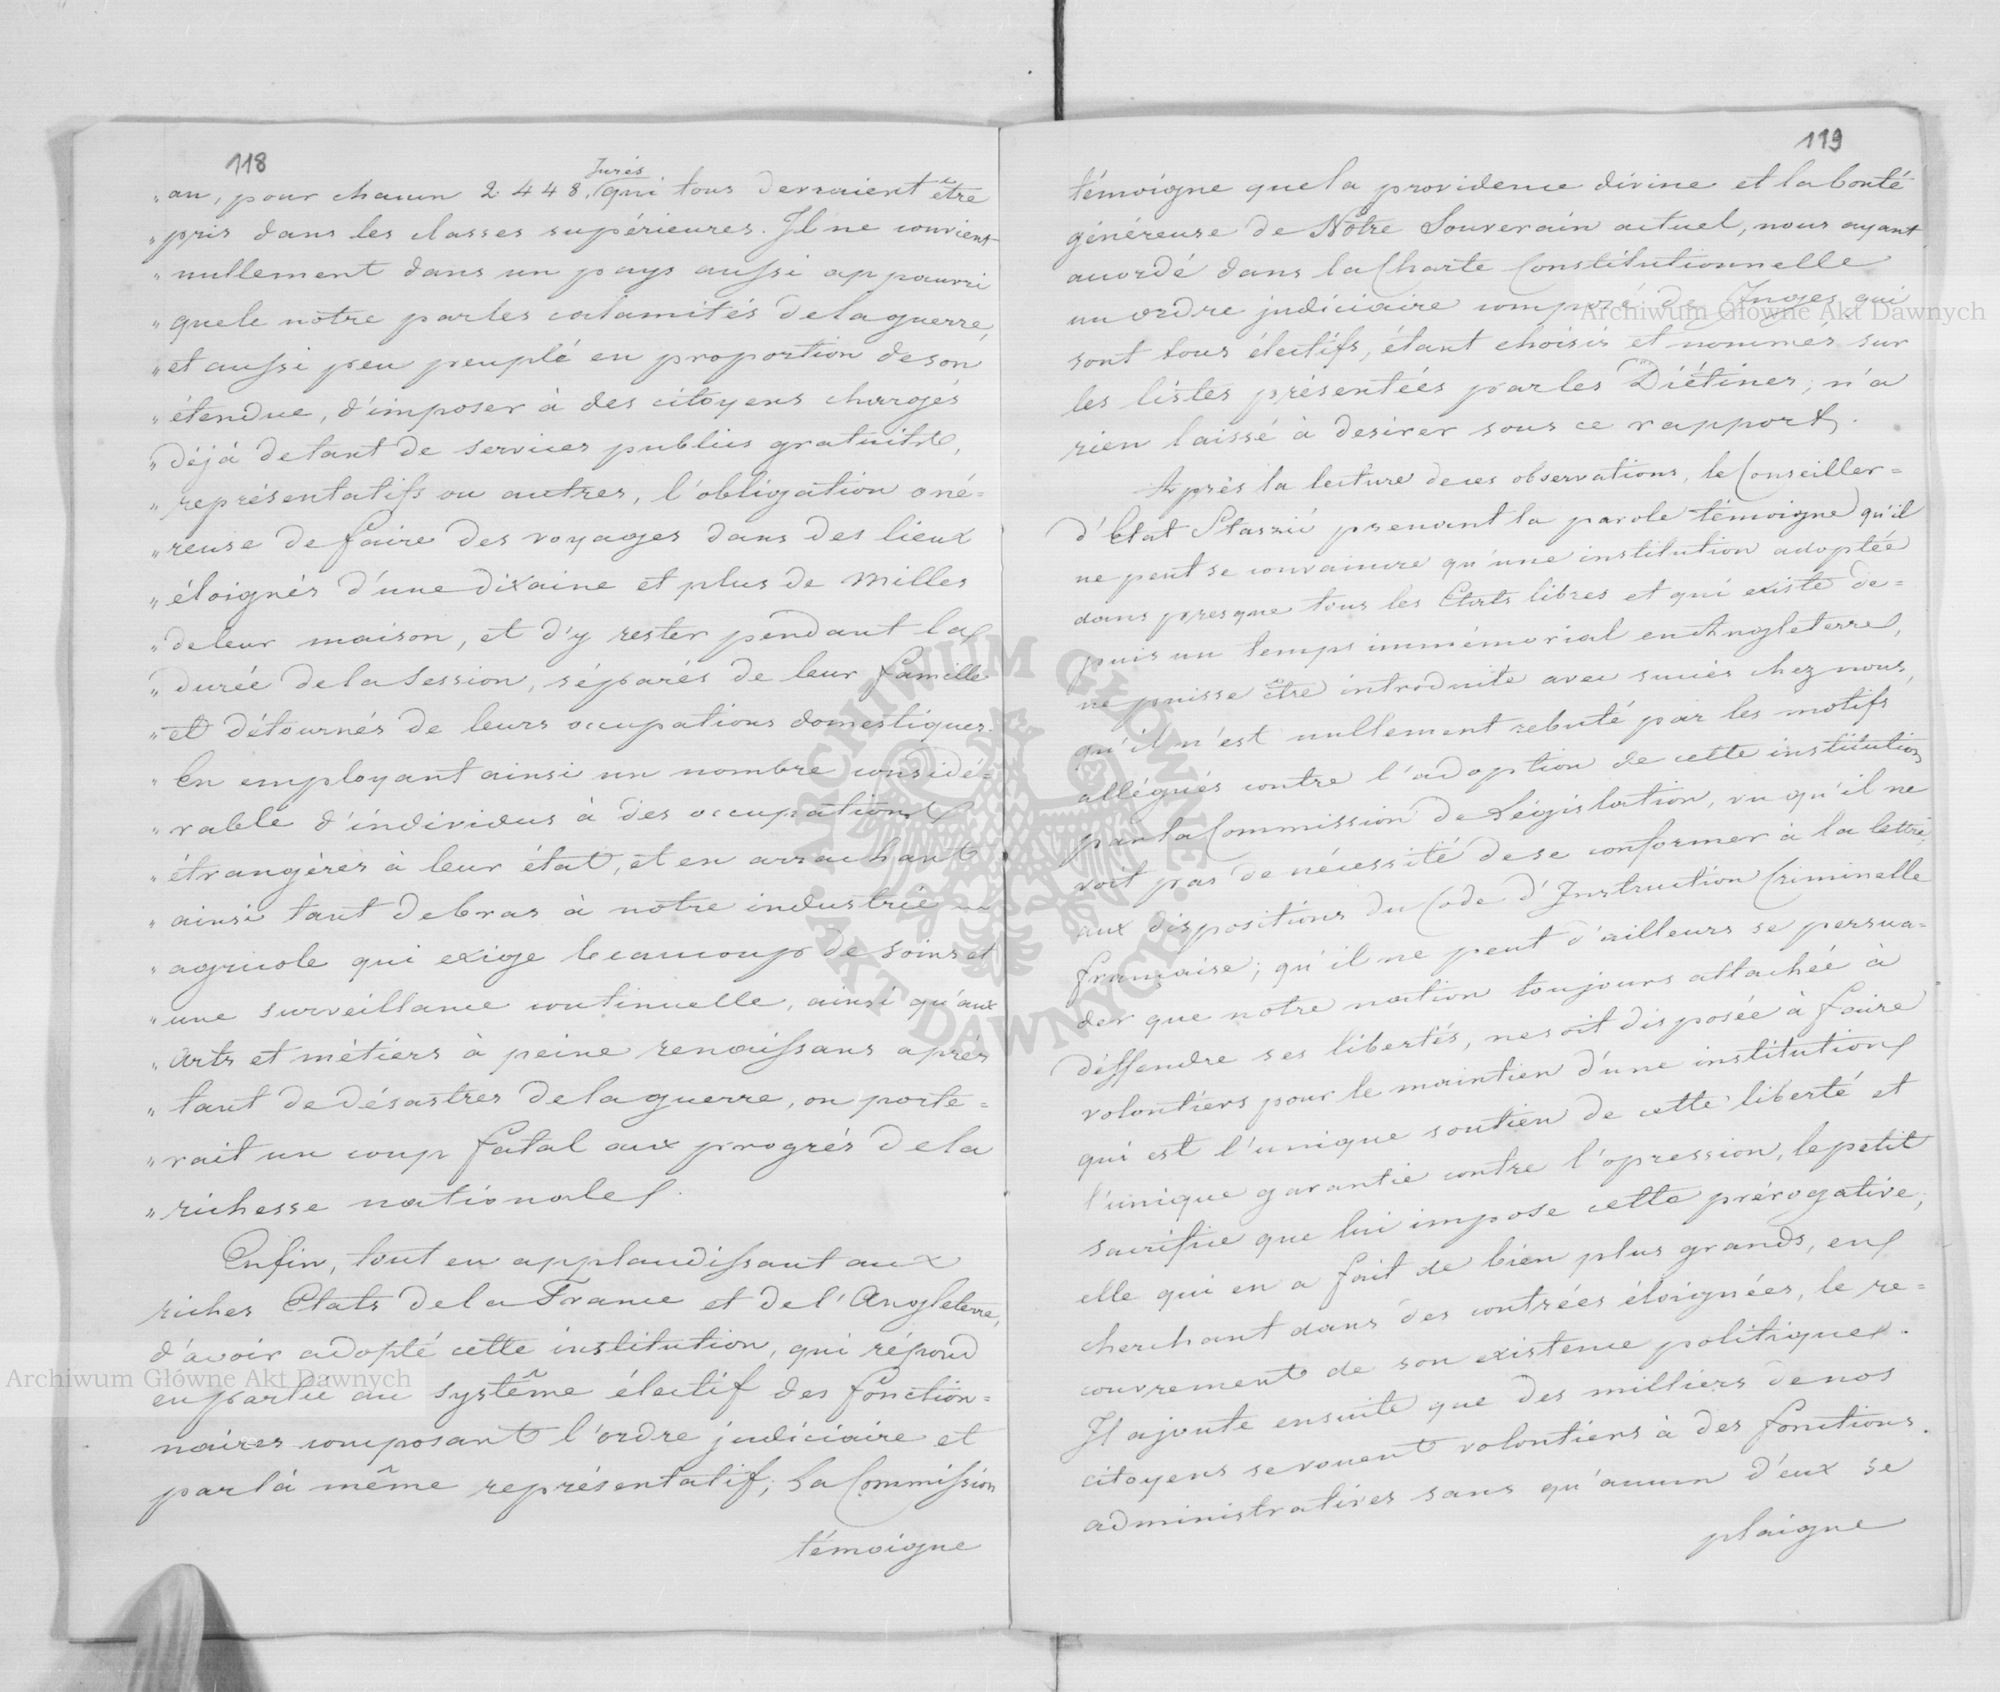 118
„an, pour chacun 2.448. Jurés qui tous devraient être
„pris dans les classes supérieures. Il ne convient
„nullement dans un pays aussi appauvri
„que le nôtre par les calamités de la guerre,
„et aussi peu peuplé en proportion de son
„étendue, d'imposer à des citoyens chargés
„déjà de tant de services publics gratuits,
„représentatifs ou autres, l'obligation oné=
„reuse de faire des voyages dans des lieux
„éloignés d'une dixaine et plus de milles
„de leur maison, et d'y rester pendant la
„durée de la Session, séparés de leur famille
„et détournés de leurs occupations domestiques.
„En employant ainsi un nombre considé=
„rable d'individus à des occupations
„étrangères à leur état, et en arrachant
„ainsi tant de bras à notre industrie
„agricole qui exige beaucoup de soins et
„une surveillance continuelle, ainsi qu'aux
„arts et métiers à peine renaissans après
„tant de désastres de la guerre, on porte=
„rait un coup fatal aux progrès de la
„richesse nationale.
Enfin, tout en applaudissant aux
riches Etats de la France et de l'Angleterre,
d'avoir adopté cette institution, qui répond
en partie au système électif des fonction=
naires composant l'ordre judiciaire et
par là même représentatif; La Commission
témoigne
119
témoigne que la providence divine et la bonté
généreuse de Nôtre Souverain actuel, nous ayant
accordé dans la Charte Constitutionnelle
un ordre judiciaire composé de Juges qui
sont tous électifs, étant choisis et nommés sur
les listes présentées par les Diétines; n'a
rien laissé à desirer sous ce rapport.
Après la lecture de ces observations, le Conseiller=
d'Etat Staszic prenant la parole témoigne qu'il
ne peut se convaincre qu'une institution adoptée
dans presque tous les Etats libres et qui existe de=
puis un temps immémorial en Angleterre,
ne puisse être introduite avec succès chez nous,
qu'il n'est nullement rebuté par les motifs
allégués contre l'adoption de cette institution
par la Commission de Législation, vu qu'il ne
voit pas de nécessité de se conformer à la lettre,
aux dispositions du Code d'Instruction Criminelle
française; qu'il ne peut d'ailleurs se persua=
der que notre nation toujours attachée à
déffendre ses libertés, ne soit disposée à faire
volontiers pour le maintien d'une institution
qui est l'unique soutien de cette liberté et
l'unique garantie contre l'opression, le petit
sacrifice que lui impose cette prérogative,
elle qui en a fait de bien plus grands, en
cherchant dans des contrées éloignées, le re=
couvrement de son existence politique.
Il ajoute ensuite que des milliers de nos
citoyens se vouent volontiers à des fonctions
administratives sans qu'aucun d'eux se
plaigne
Archiwum Główne Akt Dawnych
Archiwum Główne Akt Dawnych
ARCHIWUM GŁÓWNE AKT DAWNYCH